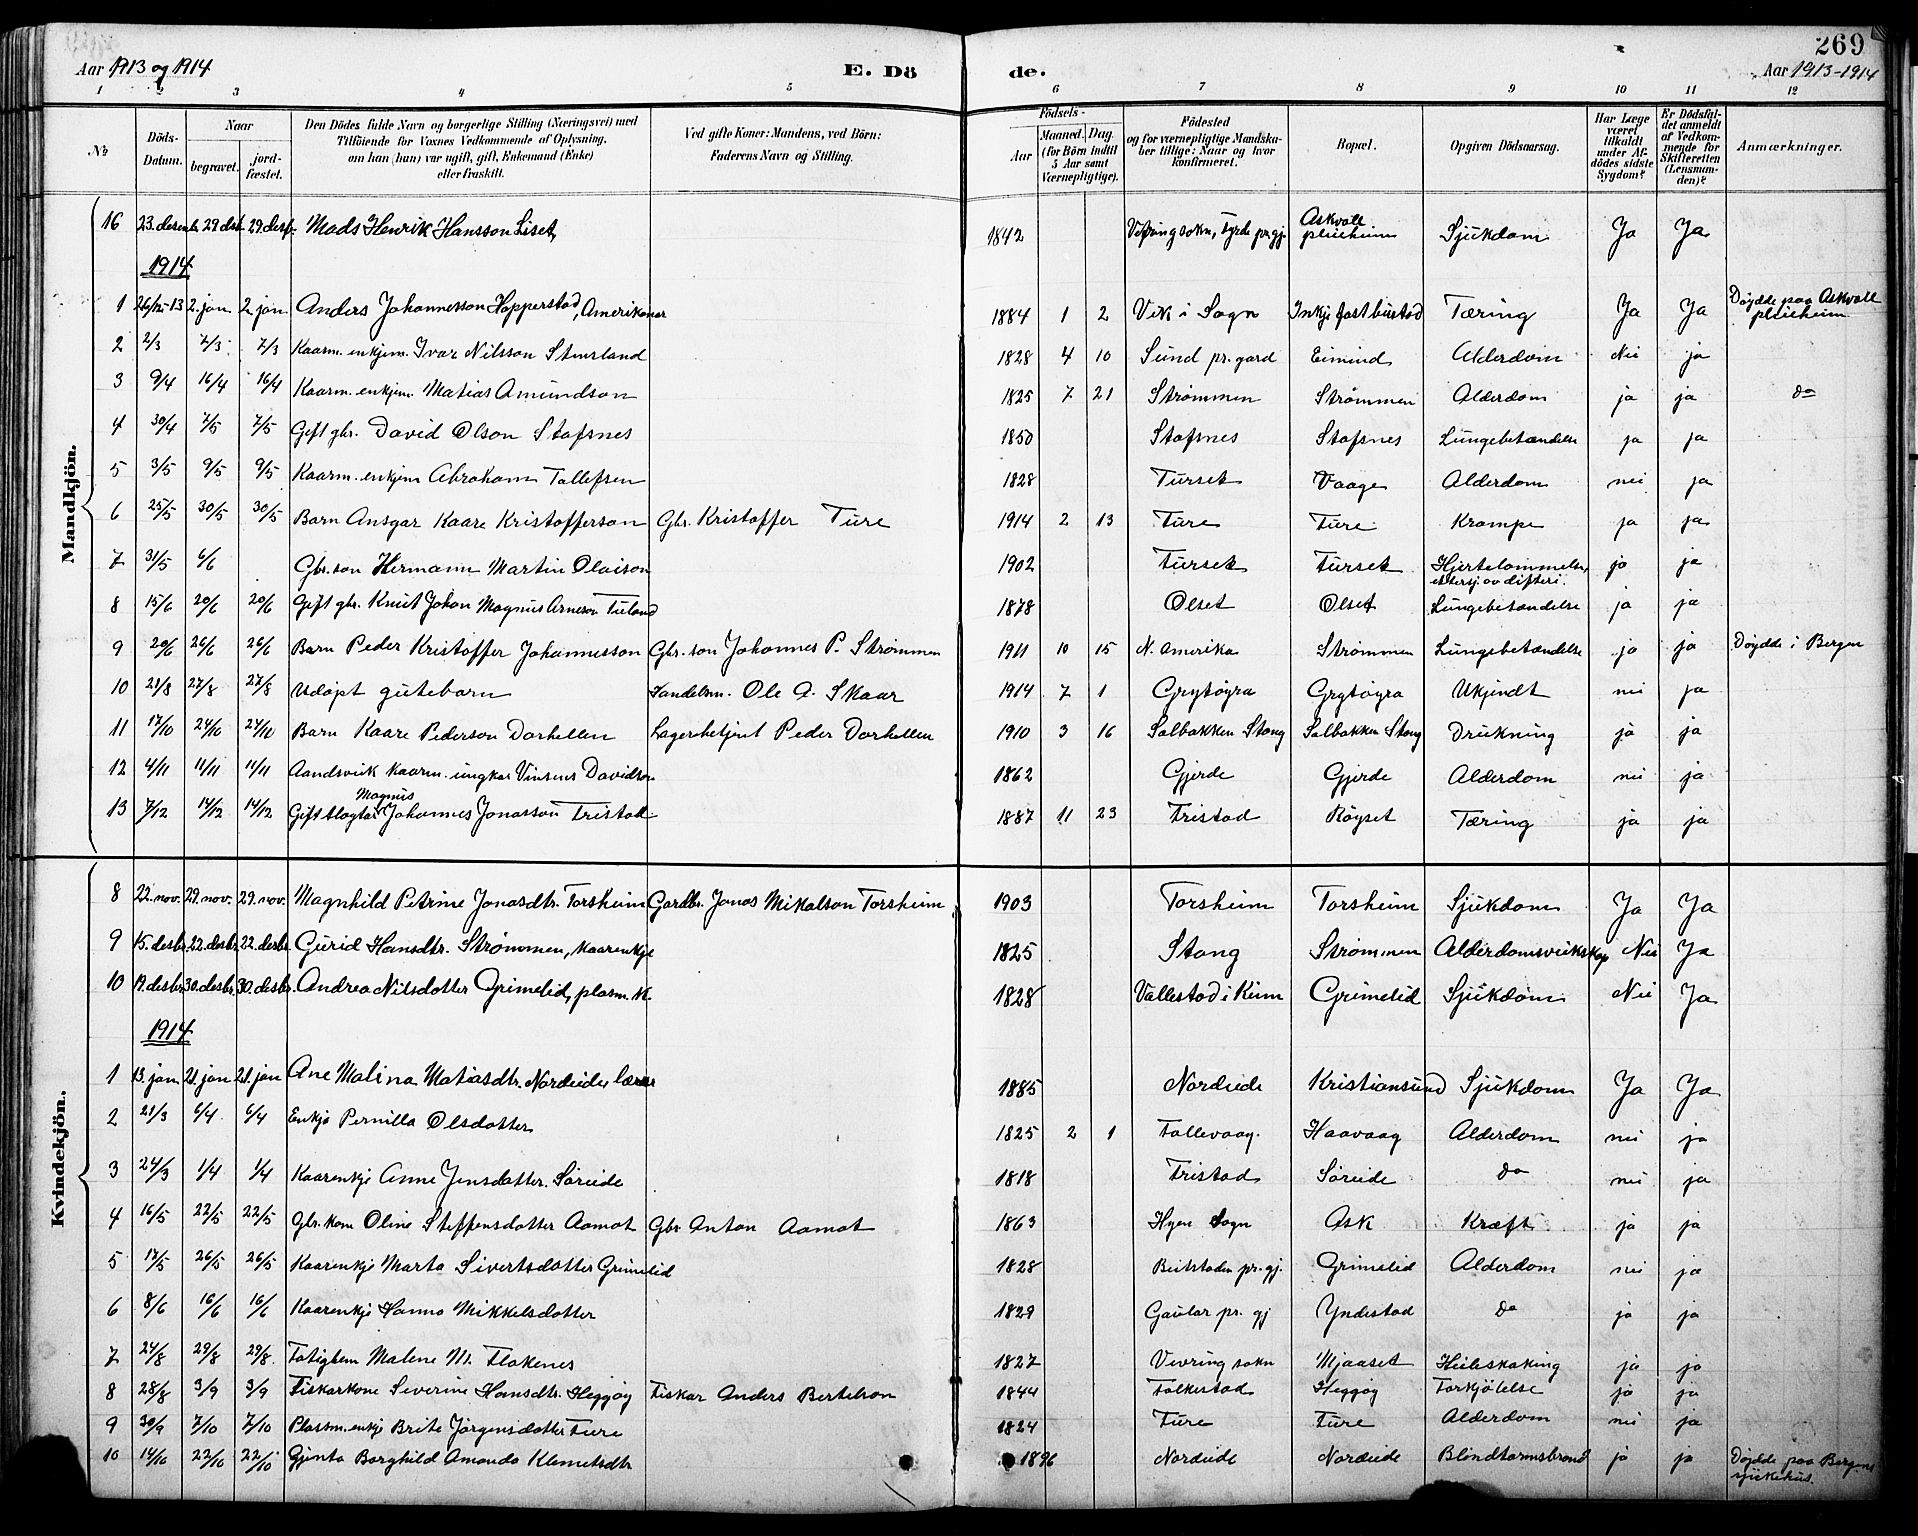 269
Aar 1913 og 1914 E. Dö de. Aar 1913-1914
1 2 3 4 5 6 7 8 9 10 11 12
№ Döds-Datum. Naar begravet. jordfæstet. Den Dödes fulde Navn og borgerlige Stilling (Næringsvei) med Tilföiende for Voxnes Vedkommende af Oplysning, om han (hun) var ugift, gift, Enkemand (Enke) eller fraskilt. Ved gifte Koner: Mandens, ved Börn: Faderens Navn og Stilling. Födsels- Aar Maaned. Dag. (for Börn indtil 5 Aar samt Værnepligtige). Födested og for værnepligtige Mandskaber tillige: Naar og hvor konfirmeret. Bopæl. Opgiven Dödsaarsag. Har Læge været tilkaldt under Afdödes sidste Sygdom? Er Dödsfaldet anmeldt af Vedkommende for Skifteretten (Lensmanden)? Anmærkninger.
Mandkjön.
16 23. desem 29 desb 29. desb. Mads Henrik Hansson Liset, 1842 Vefringsokn, Fyrde pr.gj. Askvoll pleieheim Sjukdom Ja Ja
1914
1 26/12-13 2. jan 2. jan Anders Johannesson Hopperstad, Amerikaner 1884 1 2 Vik i Sogn Inkje fast bustad Tæring Ja Ja Döydde paa Askvoll pleieheim
2 2/3 7/3 7/3 Kaarm. enkjem. Ivar Nilsson Stuurland 1828 4 10 Sund pr. gard Eimind Alderdom Nei ja
3 9/4 16/4 16/4 Kaarm. enkjem. Matias Amundson 1825 7 21 Strömmen Strömmen Alderdom ja ja do
4 30/4 7/5 7/5 Gift gbr. David Olson Stafsnes 1850 Stafsnes Stafsnes Lungebetændelse ja ja
5 3/5 9/5 9/5 Kaarm. enkjem Abraham Tollefsen 1828 Furset Vaage Alderdom nei ja
6 25/5 30/5 30/5 Barn Ansgar Kaare Kristofferson Gbr. Kristoffer Fure 1914 2 13 Fure Fure Krampe ja ja
7 31/5 6/6 Gbr.son Hermann Martin Olaison 1902 Furset Furset Hjertelammelse, ettersj. av difteri. ja ja
8 15/6 20/6 20/6 Gift gbr. Knut Johan Magnus Arneson Tuland 1878 Olset Olset Lungebetændelse ja ja
9 20/6 26/6 26/6 Barn Peder Kristoffer Johannesson Gbr. son Johannes P. Strömmen 1911 10 15 N. Amerika Strömmen Lungebetændelse ja ja Döydde i Bergen
10 21/8 27/8 27/8 Udöpt gutebarn Handelsm. Ole A. Skaar 1914 7 1 Grytöyra Grytöyra Ukjendt nei ja
11 17/10 24/10 24/10 Barn Kaare Pederson Dorhellen Lagerbetjent Peder Dorhellen 1910 3 16 Solbakken Stong Solbakken Stong Drukning ja ja
12 4/11 11/11 11/11 Aandsveik kaarm. ungkar Vinsens Davidson 1862 Gjerde Gjerde Alderdom nei ja
13 7/12 14/12 14/12 Gift slagtar Magnus Johannes Jonasson Fristad 1887 11 23 Fristad Röyset Tæring ja ja
Kvindekjön.
8 22. nov. 29. nov. 29. nov. Magnhild Petrine Jonasdtr. Torsheim Gardbr. Jonas Mikalson Torsheim 1903 Torsheim Torsheim Sjukdom Ja Ja
9 15. desbr. 22. desbr. 22. desbr. Gurid Hansdtr. Strömmen, kaarenkje 1825 Stong Strömmen Alderdomsveikskap Nei Ja
10 19. desbr. 30. desbr. 30. desbr. Andrea Nilsdotter Grimelid, plasm. k. 1828 Vallestad i Kinn Grimelid Sjukdom Nei Ja
1914
1 13. jan 21. jan 21. jan Ane Malina Matiasdtr. Nordeide, lærar 1885 Nordeide Kristiansund Sjukdom Ja Ja
2 21/3 6/4 6/4 Enkje Pernilla Olsdotter 1825 2 1 Tollevaag. Haavaag Alderdom nei ja
3 24/3 1/4 1/4 Kaarenkje Anne Jensdatter. Söreide 1818 Fristad Söreide do nei ja
4 16/5 22/5 22/5 Gbr. kone Oline Steffensdotter Aamot Gbr. Anton Aamot 1863 Hyen Sogn Ask Kræft ja ja
5 17/5 26/5 26/5 Kaarenkje Marta Sivertsdotter Grimelid 1828 Beitstaden pr.gj. Grimelid Alderdom nei ja
6 8/6 16/6 16/6 Kaarenkje Hanna Mikkelsdotter 1829 Gaular pr. gj Yndestad do ja ja
7 24/8 29/8 29/8 Fatiglem Malene M. Flokenes 1827 Vevring sokn Mjaaset Heileskaking ja ja
8 28/8 3/9 3/9 Fiskarkone Severine Hansdtr. Heggöy Fiskar Anders Bertelson 1844 Folkestad Heggöy Forkjölelse ja ja
9 30/9 7/10 7/10 Plassm. enkje Brite Jörgensdotter Fure 1824 Fure Fure Alderdom nei ja
10 14/10 22/10 22/10 Gjenta Borghild Amanda Klemetsdtr 1896 Nordeide Nordeide Blindtarmsbrand ja ja Döydde paa Bergens sjukehus.